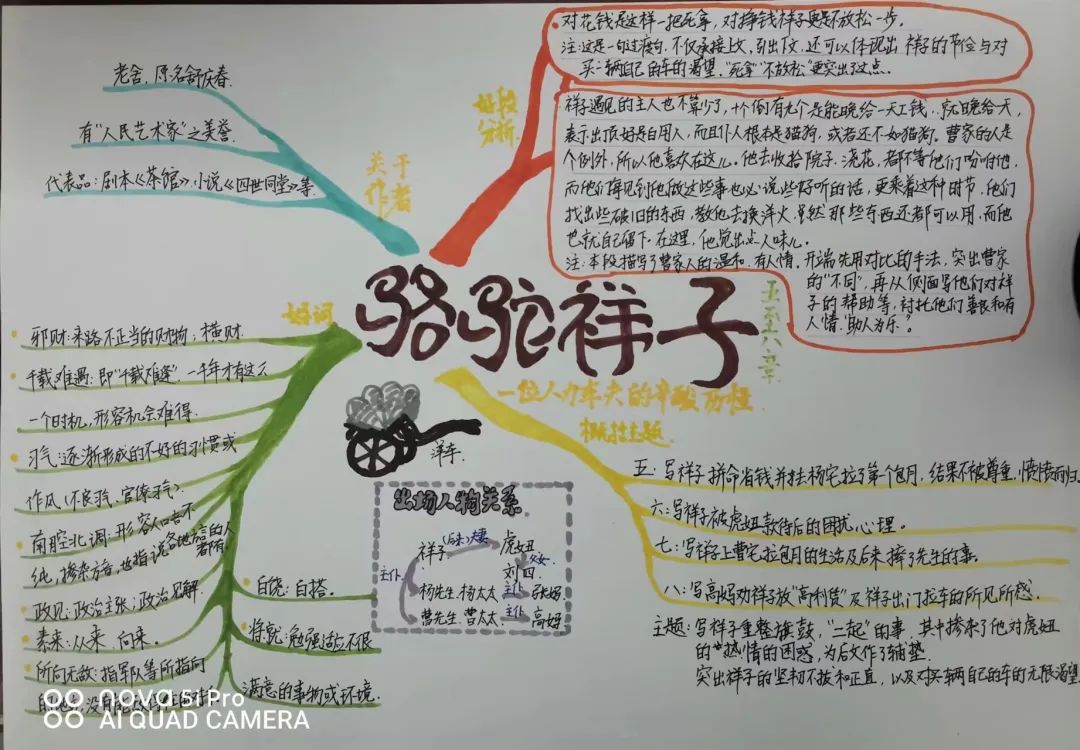 骆驼祥子
五至八章
一位人力车夫的辛酸历程
关于作者
老舍，原名舒庆春.
有“人民艺术家”之美誉.
代表品：剧本《茶馆》，小说《四世同堂》等.
好段分析
对花钱是这样一把死拿，对挣钱祥子更是不放松一步。
注：这是一句过渡句，不仅承接上文，引出下文，还可以体现出祥子的节俭与对
买一辆自己的车的渴望，“死拿”“不放松”更突出了这点.
祥子遇见的主人也不算少了，十个倒有九个是能晚给一天工钱，就晚给一天，
表示出顶好是白用人，而且仆人根本是猫狗，或者还不如猫狗。曹家的人是
个例外，所以他喜欢在这儿。他去收拾院子，浇花，都不等他们吩咐他，
而他们每见到他做这些事也必说些好听的话，更乘着这种时节，他们
找出些破旧的东西，教他去换洋火，虽然那些东西还都可以用，而他
也就自己留下。在这里，他觉出点人味儿。
注：本段描写了曹家人的温和，有人情。开端先用对比的手法，突出曹家
的“不同”，再从侧面写他们对祥
子的帮助等，衬托他们善良和有
人情，助人为乐。
好词
邪财：来路不正当的财物；横财
千载难遇：即“千载难逢”.一千年才有这么
一个时机，形容机会难得.
习气：逐渐形成的不好的习惯或
作风（不良习气、官僚习气）
南腔北调：形容口音不
纯，掺杂方言，也指说各地方言的人都有
政见：政治主张；政治见解.
素来：从来，向来。
所向无敌：指军队等所指向
的地方，没有能
白饶：白搭。
将就：勉强适应不很
满意的事物或环境.
洋车
出场人物关系
祥子 （后来）夫妻 虎妞
父女
刘四
主仆
杨先生、杨太太 主仆 张妈
曹先生、曹太太 主仆 高妈
概括主题
五：写祥子拼命省钱并在杨宅拉了第一个包月，结果不被尊重，愤愤而归.
六：写祥子被虎妞款待后的困扰心理。
七：写祥子上曹宅拉包月的生活及后来摔了先生的事。
八：写高妈劝祥子放“高利贷”及祥子出门拉车的所见所感.
主题：写祥子重整旗鼓，“二起”的事，其中掺杂了他对虎妞
的“热情”的困惑，为后文作了铺垫.
突出祥子的坚韧不拔和正直，以及对买辆自己的车的无限渴望
nova 5i Pro
AI QUAD CAMERA